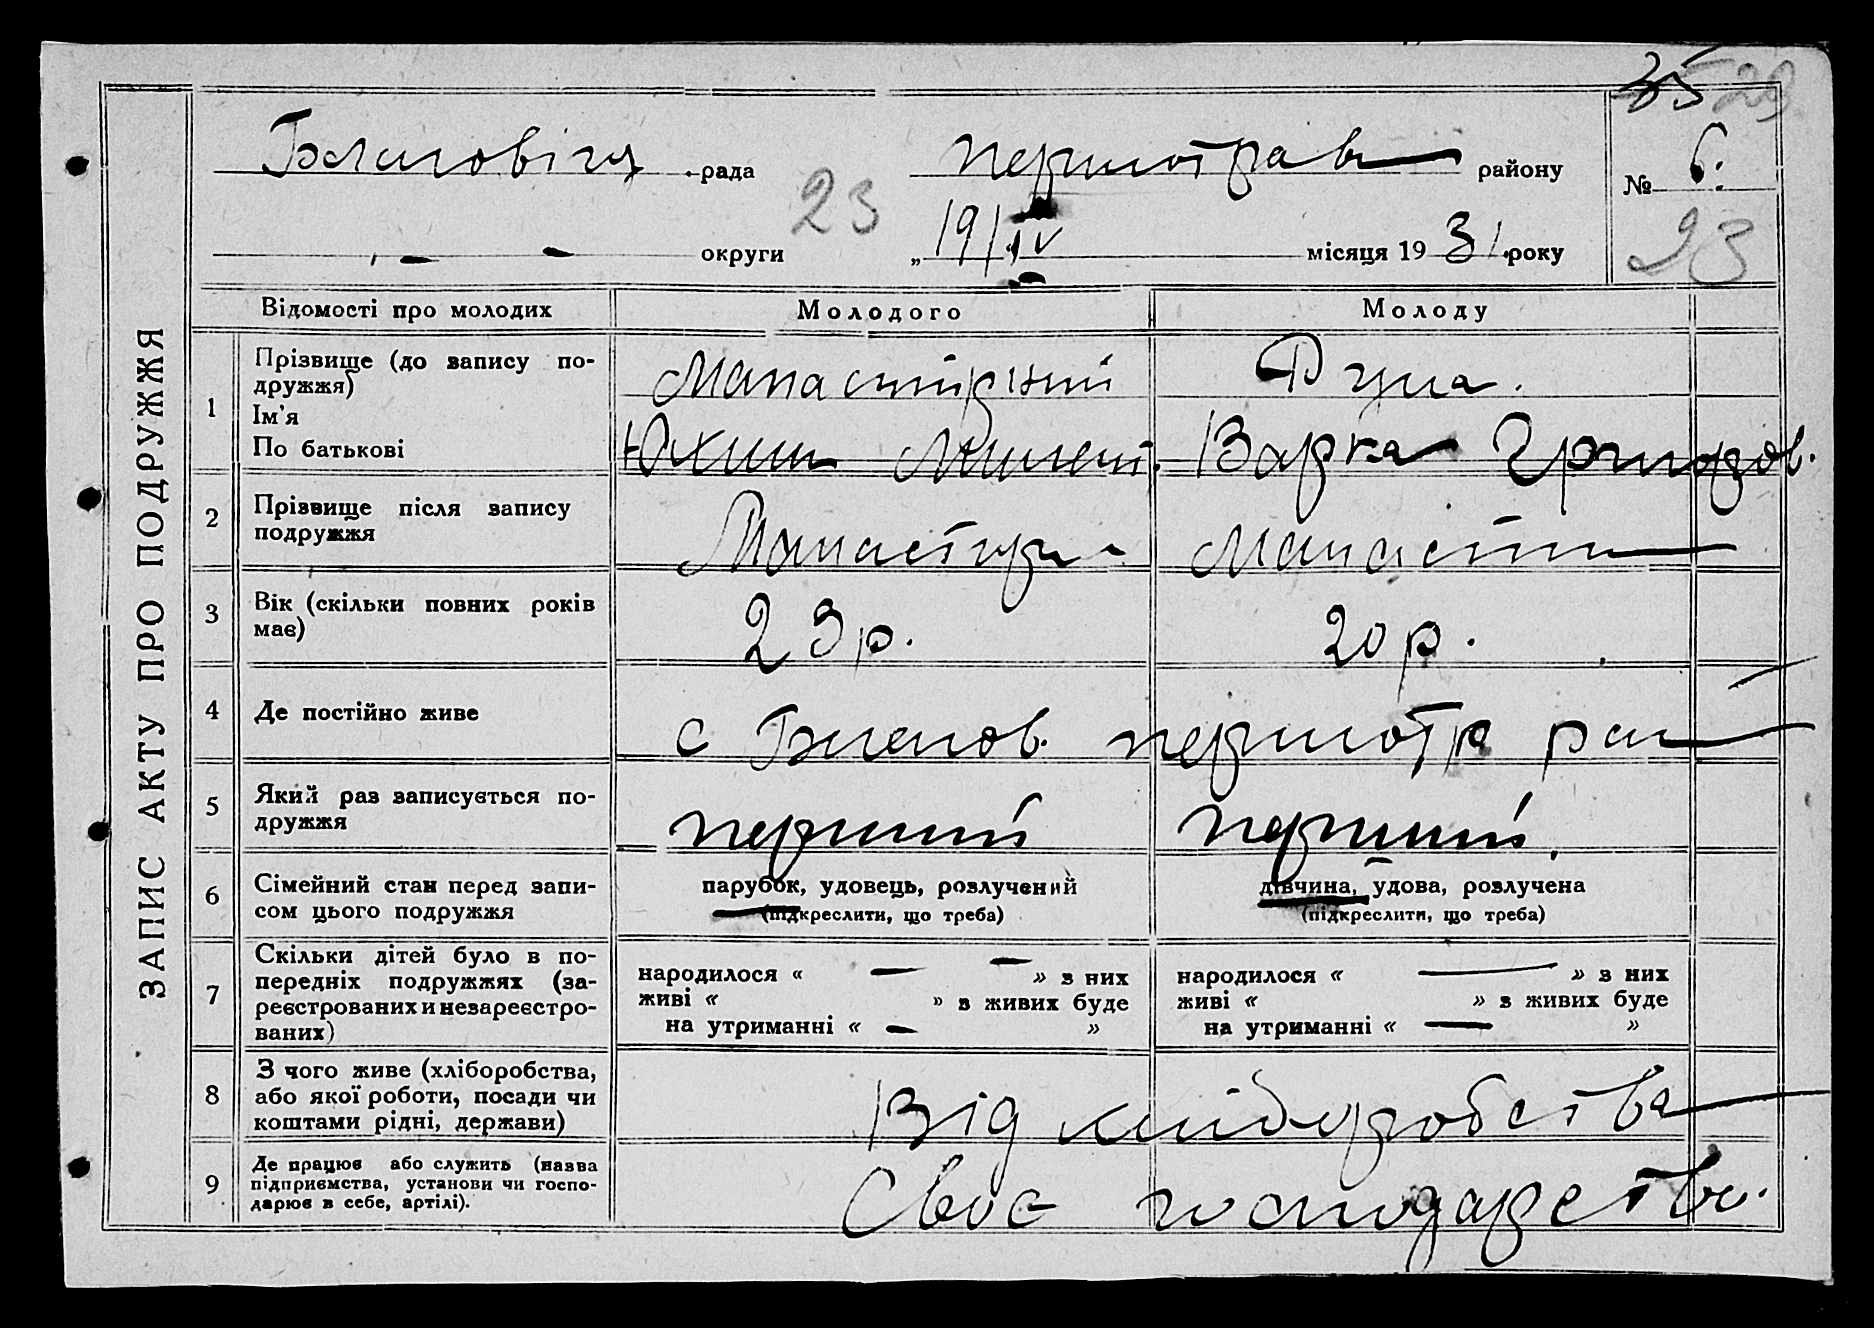 35 29
рада
Першотрав району № 6.
23
округи „19/IV місяця 1931 року
23
ЗАПИС АКТУ ПРО ПОДРУЖЖЯ
Відомості про молодих Молодого Молоду
1 Прізвище (до запису по-
дружжя)
Ім'я
По батькові
Манастирний Дума.
Юхим Варка Григоров.
2 Прізвище після запису
подружжя
3 Вік (скільки повних років
має)
23р. 20 р.
4 Де постійно живе
с першотр рай
5 Який раз записується по-
дружжя
перший перший.
6 Сімейний стан перед запи-
сом цього подружжя
парубок, удовець, розлучений
(підкреслити, що треба)
дівчина, удова, розлучена
(підкреслити, що треба)
7 Скільки дітей було в по-
передніх подружжях (за-
реєстрованих и незареєстро-
ваних)
народилося « — — » з них
живі « » з живих буде
на утриманні « — »
народилося « — » з них
живі « » з живих буде
на утриманні « — »
8 З чого живе (хліборобства,
або якої роботи, посади чи
коштами рідні, держави)
Від хліборобства
9 Де працює або служить (назва
підприємства, установи чи госпо-
дарює в себе, артілі).
Своє господарство.